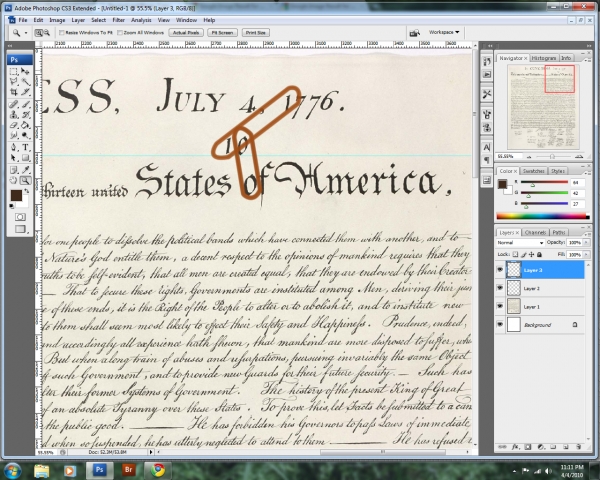 Adobe Photoshop CS3 Extended - [Untitled-1 @ 55.5% (Layer 3, RGB/8)]
File Edit Image Layer Select Filter Analysis View Window Help
Resize Windows To Fit Zoom All Windows Actual Pixels Fit Screen Print Size Workspace
2100 2200 2300 2400 2500 2600 2700 2800 2900 3000 3100 3200 3300 3400 3500 3600
Ps
ESS, JULY 4, 1776.
thirteen united States of America,
for one people to dissolve the political bands which have connected them with another, and to
Nature's God entitle them, a decent respect to the opinions of mankind requires that they
truths to be self-evident, that all men are created equal, that they are endowed by their Creator
— That to secure these rights, Governments are instituted among Men, deriving their just
of these ends, it is the Right of the People to alter or to abolish it, and to institute new
to them shall seem most likely to effect their Safety and Happiness. Prudence, indeed,
and accordingly all experience hath shewn, that mankind are more disposed to suffer, whi
But when a long train of abuses and usurpations, pursuing invariably the same Object
off such Government, and to provide new Guards for their future security. — Such has
alter their former Systems of Government. The history of the present King of Great
of an absolute Tyranny over these States. To prove this, let Facts be submitted to a can
the public good. — He has forbidden his Governors to pass Laws of immediate
and when so suspended, he has utterly neglected to attend to them. — He has refused t
55.55% Doc: 52.2M/53.6M
Navigator Histogram Info
55.55%
Color Swatches Styles
R 64
G 42
B 27
Layers Channels Paths
Normal Opacity: 100%
Lock: Fill: 100%
Layer 3
Layer 2
Layer 1
Background
Ps Br
11:11 PM
4/4/2010